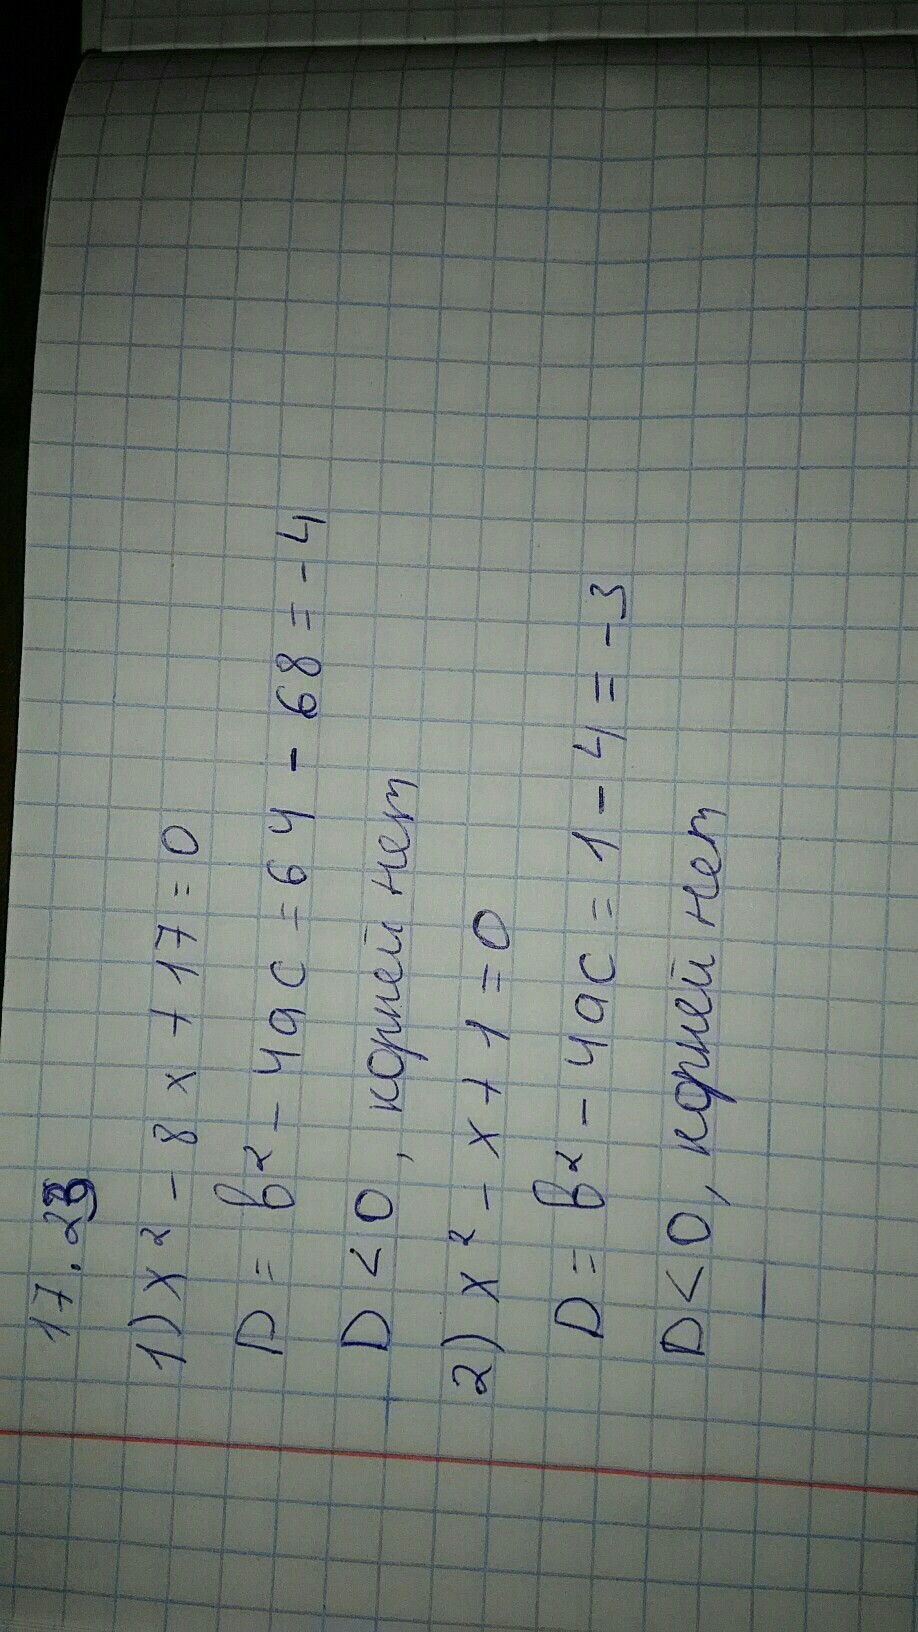 17.23
1) x² - 8x + 17 = 0
D = b² - 4ac = 64 - 68 = -4
D < 0, корней нет
2) x² - x + 1 = 0
D = b² - 4ac = 1 - 4 = -3
D < 0, корней нет